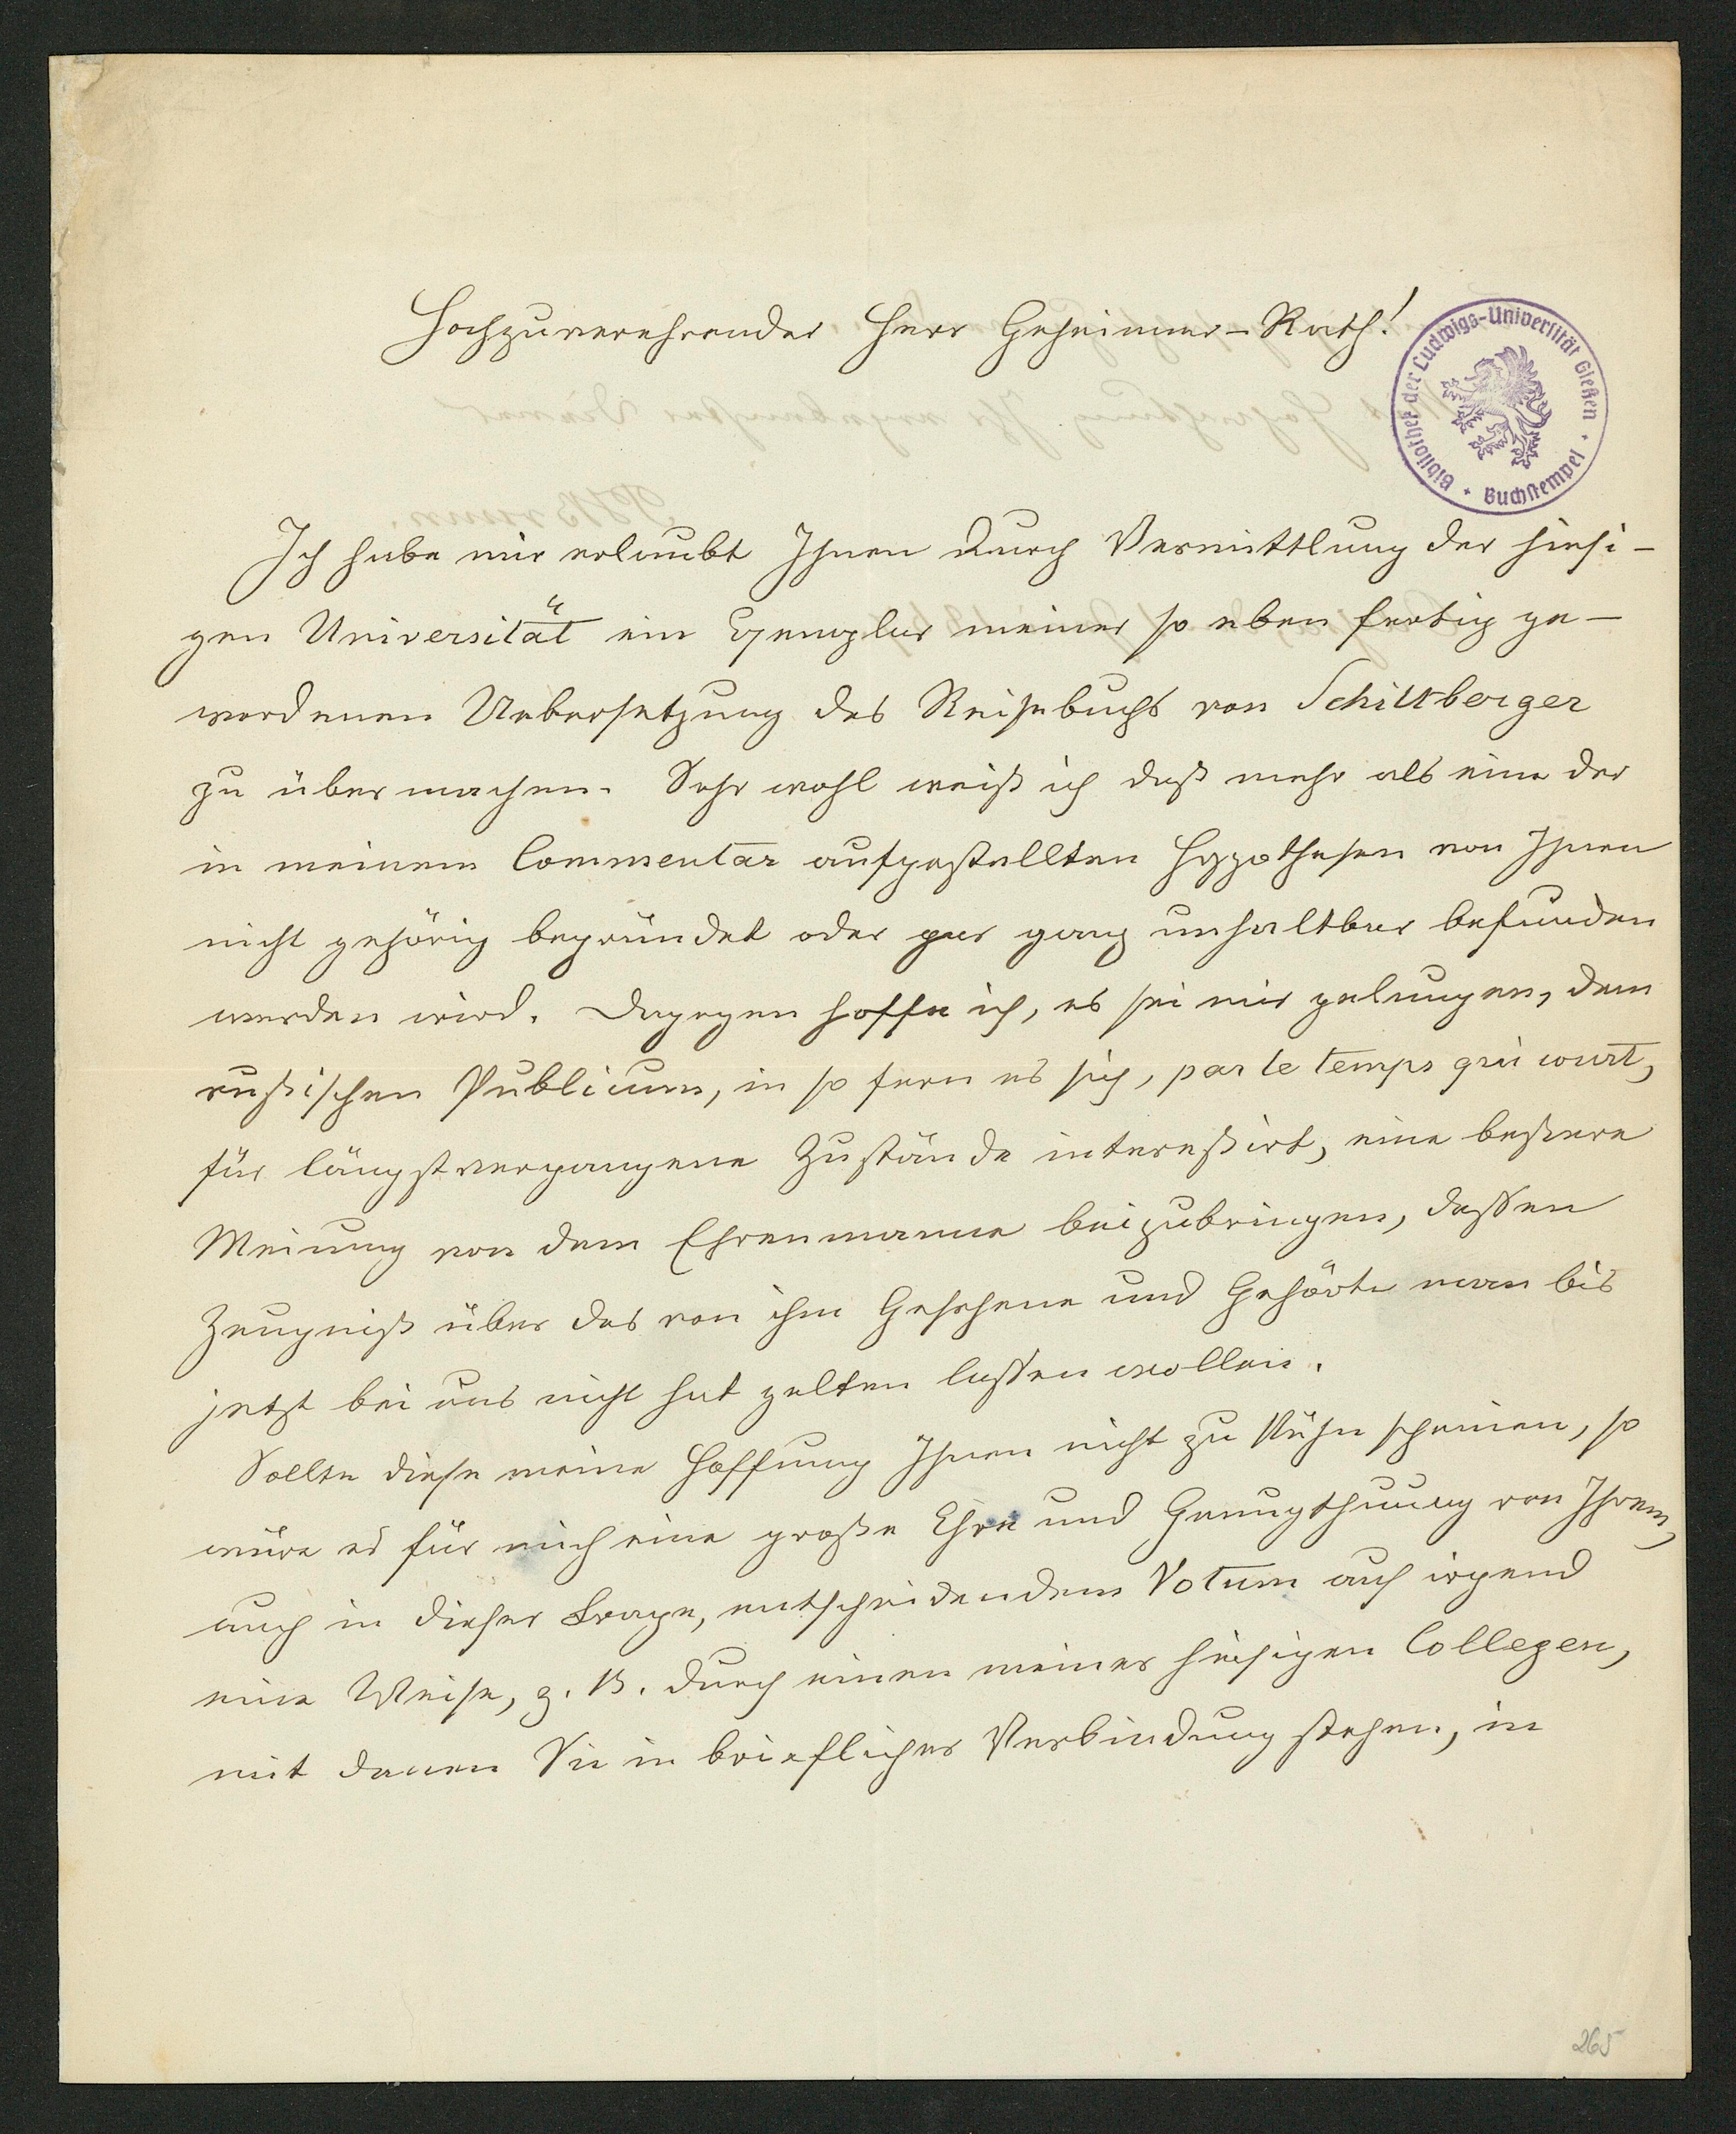 Hochzuverehrender Herr Geheimer-Rath!
Bibliothek der Ludwigs-Universität Gießen · Buchstempel ·
Ich habe mir erlaubt Ihnen durch Vermittlung der hiesi-
gen Universität ein Exemplar meiner so eben fertig ge-
wordenen Uebersetzung des Reisebuchs von Schiltberger
zu übermachen. Sehr wohl weiß ich daß mehr als eine der
in meinem Commentar aufgestellten Hypothesen von Ihnen
nicht gehörig begründet oder gar ganz unhaltbar befunden
werden wird. Dagegen hoffe ich, es sei mir gelungen, dem
rußischen Publicum, in so fern es sich, par le temps qui court,
für längstvergangene Zustände intereßirt, eine beßere
Meinung von dem Ehrenmanne beizubringen, deßen
Zeugniß über das von ihm Gesehene und Gehörte man bis
jetzt bei uns nicht hat gelten laßen wollen.
Sollte diese meine Hoffnung Ihnen nicht zu kühn scheinen, so
wäre es für mich eine große Ehre und Genugthuung von Ihrem,
auch in dieser Frage, entscheidendem Votum auf irgend
eine Weise, z. B. durch einen meiner hiesigen Collegen,
mit denen Sie in brieflicher Verbindung stehen, in
265